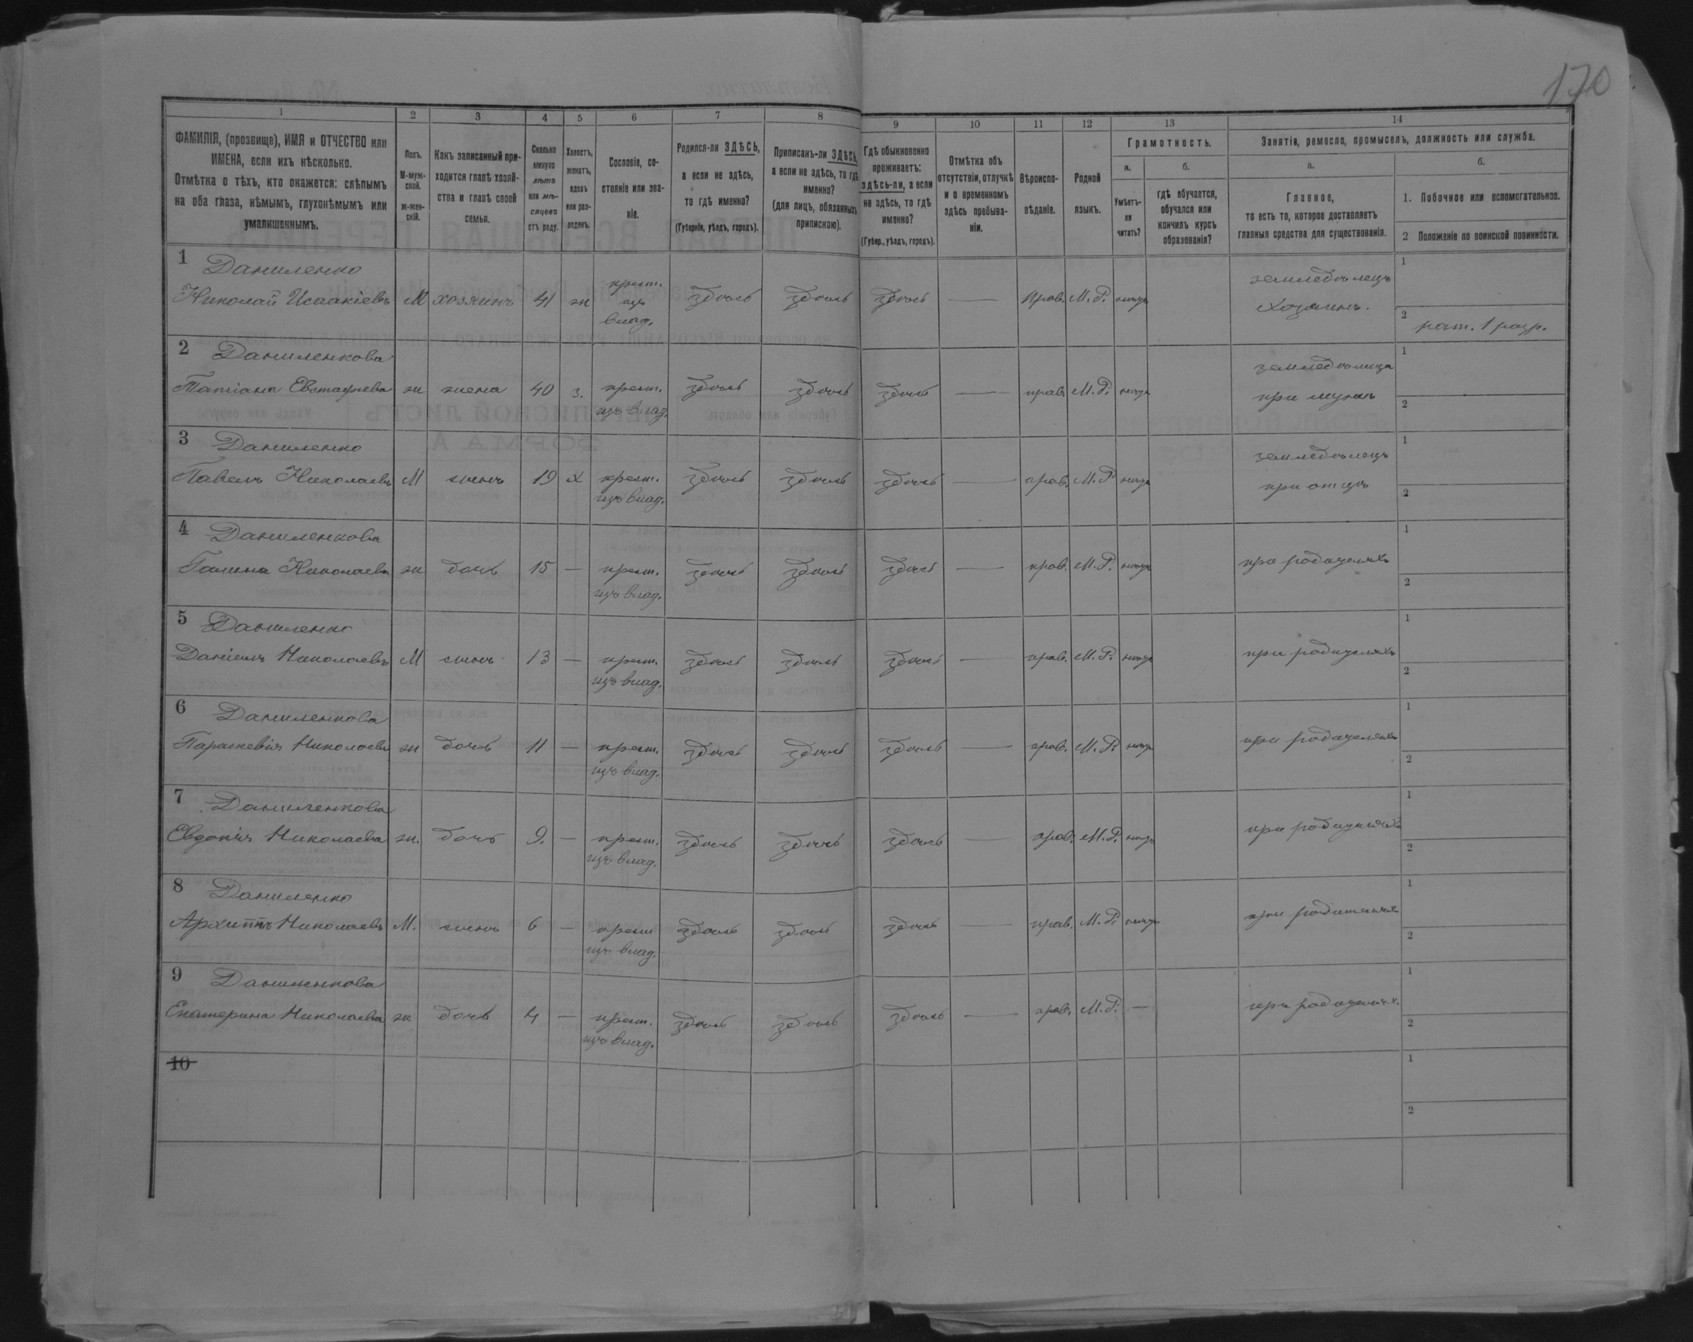 170
1 2 3 4 5 6 7 8 9 10 11 12 13 14
ФАМИЛІЯ, (прозвище), ИМЯ и ОТЧЕСТВО или
ИМЕНА, если ихъ нѣсколько.
Отмѣтка о тѣхъ, кто окажется: слѣпымъ
на оба глаза, нѣмымъ, глухонѣмымъ или
умалишеннымъ.
Полъ.
М-муж-
ской.
ж-жен-
скій.
Какъ записанный при-
ходится главѣ хозяй-
ства и главѣ своей
семьи.
Сколько
минуло
лѣтъ
или мѣ-
сяцевъ
отъ роду.
Холостъ,
женатъ,
вдовъ
или раз-
веденъ.
Сословіе, со-
стояніе или зва-
ніе.
Родился-ли ЗДѢСЬ,
а если не здѣсь,
то гдѣ именно?
(Губернія, уѣздъ, городъ).
Приписанъ-ли ЗДѢСЬ,
а если не здѣсь, то гдѣ
именно?
(для лицъ, обязанныхъ
припискою).
Гдѣ обыкновенно
проживаетъ:
здѣсь-ли, а если
не здѣсь, то гдѣ
именно?
(Губер., уѣздъ, городъ).
Отмѣтка объ
отсутствіи, отлучкѣ
и о временномъ
здѣсь пребыва-
ніи.
Вѣроиспо-
вѣданіе.
Родной
языкъ.
Грамотность.
а. б.
Умѣетъ-
ли
читать?
гдѣ обучается,
обучался или
кончилъ курсъ
образованія?
Занятіе, ремесло, промыселъ, должность или служба.
а. б.
Главное,
то есть то, которое доставляетъ
главныя средства для существованія.
1. Побочное или вспомогательное.
2 Положеніе по воинской повинности.
1 Даниленко землѣдѣлецъ 1
Николай Исаакіевъ М хозяинъ 41 ж крест. здѣсь здѣсь здѣсь — Прав. М.Р. нѣтъ хозяинъ.
изъ влад. 2 рат. 1 разр.
2 Даниленкова землѣдѣлица 1
Татіана Евстафіева ж жена 40 з. крест. здѣсь здѣсь здѣсь — прав. М.Р. нѣтъ при мужѣ
изъ влад. 2
3 Даниленко землѣдѣлецъ 1
Павелъ Николаевъ М сынъ 19 х крест. здѣсь здѣсь здѣсь — прав. М.Р. нѣтъ при отцѣ
изъ влад. 2
4 Даниленкова 1
Николаева ж дочь 15 — крест. здѣсь здѣсь здѣсь — прав. М.Р. нѣтъ при родителяхъ
изъ влад. 2
5 Даниленко 1
Даніилъ Николаевъ М сынъ 13 — крест. здѣсь здѣсь здѣсь — прав. М.Р. нѣтъ при родителяхъ
изъ влад. 2
6 Даниленкова 1
Параскевія Николаева ж дочь 11 — крест. здѣсь здѣсь здѣсь — прав. М.Р. нѣтъ при родителяхъ
изъ влад. 2
7 Даниленкова 1
Евдокія Николаева ж. дочь 9. — крест. здѣсь здѣсь здѣсь — прав. М.Р. нѣтъ при родителяхъ
изъ влад. 2
8 Даниленко 1
Архиппъ Николаевъ М. сынъ 6 — крест. здѣсь здѣсь здѣсь — прав. М.Р. нѣтъ при родителяхъ
изъ влад. 2
9 Даниленкова 1
Екатерина Николаева ж дочь 4 — крест. здѣсь здѣсь здѣсь — прав. М.Р. — при родителяхъ
изъ влад. 2
10 1
2